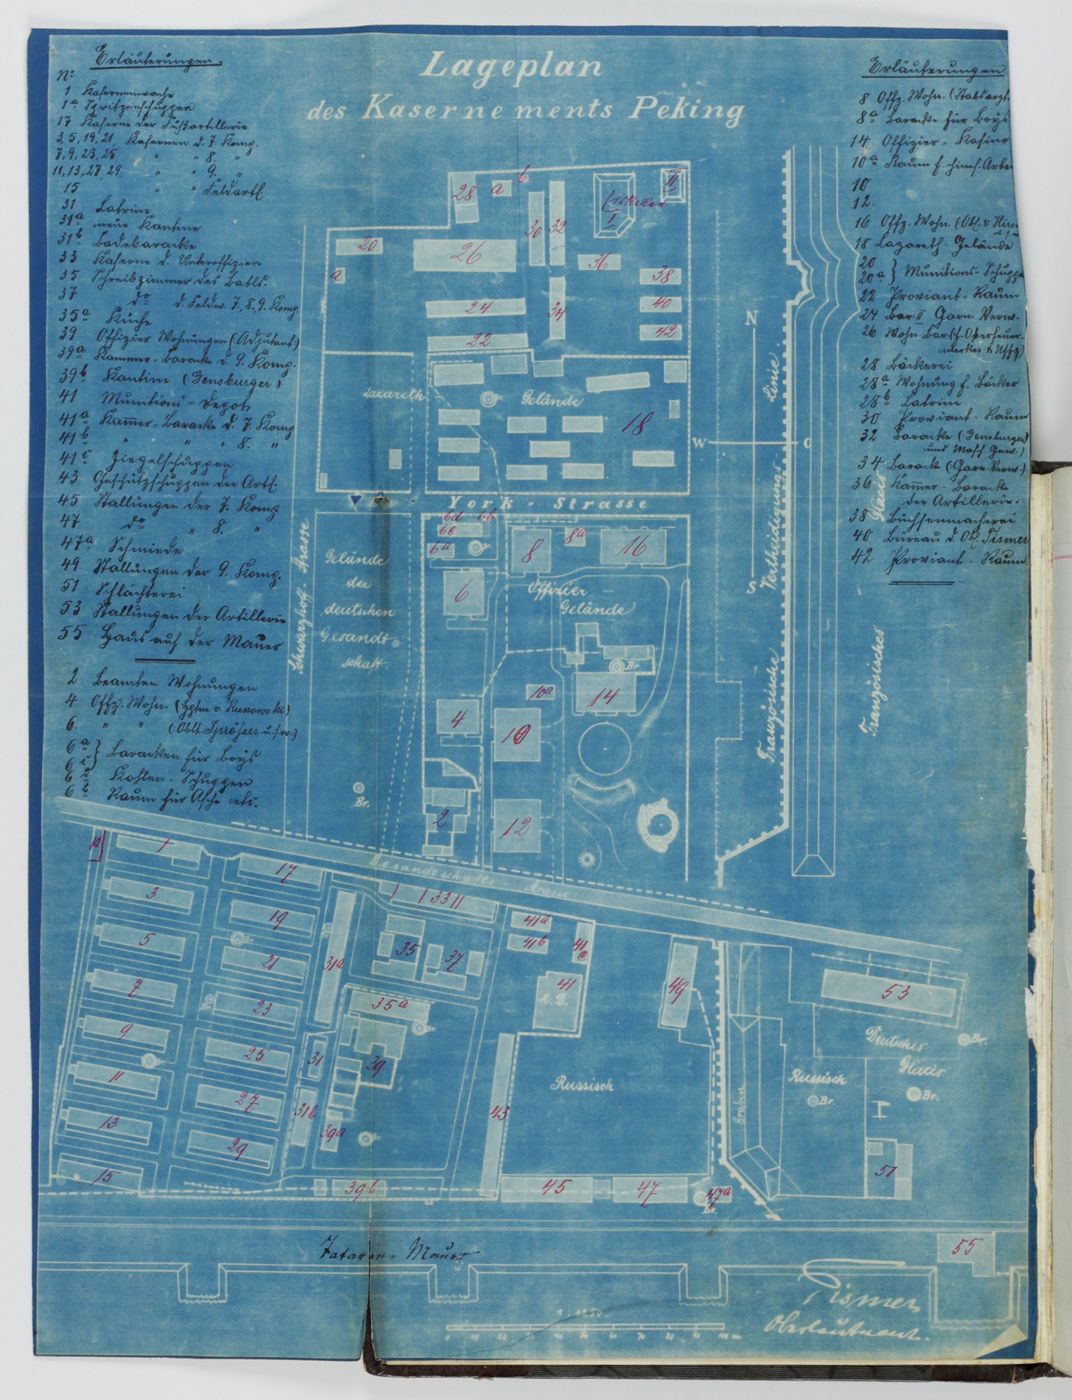 Lageplan
des Kasernements Peking
Erläuterungen.
No
1 Kasernenwache
1a Spritzenschuppen
17 Kaserne der Fußartillerie
3, 5, 19, 21 Kasernen d. 7 Komp.
7, 9, 23, 25 " " 8. "
11, 13, 27 29 " " 9. "
15 " " Feldartl
31 Latrine
31a neue Kantine
31b Badebaracke
33 Kaserne d. Unteroffiziere
35 Schreibzimmer des Batls.
37 do d. Feldw. 7, 8, 9. Komp.
35a Küche
39 Offizier Wohnungen (Adjutant)
39a Kammer-Baracke d. 9. Komp.
39b Kantine (Gensburger)
41 Munitions-Depot
41a Kammer-Baracke d. 7 Komp
41b " " " 8. "
41c Ziegelschuppen
43 Geschützschuppen der Artl
45 Stallungen der 7. Komp
47 do " 8. "
47a Schmiede
49 Stallungen der 9. Komp.
51 Schlächterei
53 Stallungen der Artillerie
55 Haus auf der Mauer
2 Beamten Wohnungen
4 Offz. Wohn.
6 " "
6a
6c } Baracken für Boys
6d Kohlen-Schuppen
6b Raum für Asche
Erläuterungen
8 Offz. Wohn. (Stabsarzt
8a Baracke für Boys
14 Offizier-Kasino
10a Raum f. chines. Arbei
10
12.
16 Offz. Wohn
18 Lazareth-Gelände
20
20a } Munitions-Schupp
22 Proviant-Raum
24 Bar. II Garn. Verw.
26 Wohn Bar.
28 Bäckerei
28a Wohnung f. Bäcker
28b Latrine
30 Proviant-Raum
32 Baracke (Gensburger)
34 Barack (Garn. Verw.)
36 Kammer-Baracke
der Artillerie.
38 Büchsenmacherei
40 Bureau d. Obl. Tismer
42 Proviant-Raum
28 a b
20
a
26
30 32
I
II
36
38
40
42
24
34
22
Lazareth
Gelände
18
N
W
O
S
York-Strasse
Schwarzhoff-Strasse
Gelände
der
deutschen
Gesandt
schaft
Br.
6d 6b
6c
6a
6
8
8a
16
Offizier
Gelände
Br.
14
10a
4
10
12
2
Französische Verteidigungs Linie
Französisches Glacis
Gesandschafts Strasse
1a
1
17
3
19
5
21
7
23
9
25
11
27
13
29
15
31a
31
31b
33
35
37
35a
39
39a
39b
41a
41b
41c
41
M.D.
43
Russisch
45
47
47a
49
Graben
Russisch
Br.
53
Deutsches
Glacis
Br.
Br.
51
55
Tataren-Mauer
Tismer
Oberleutnant.